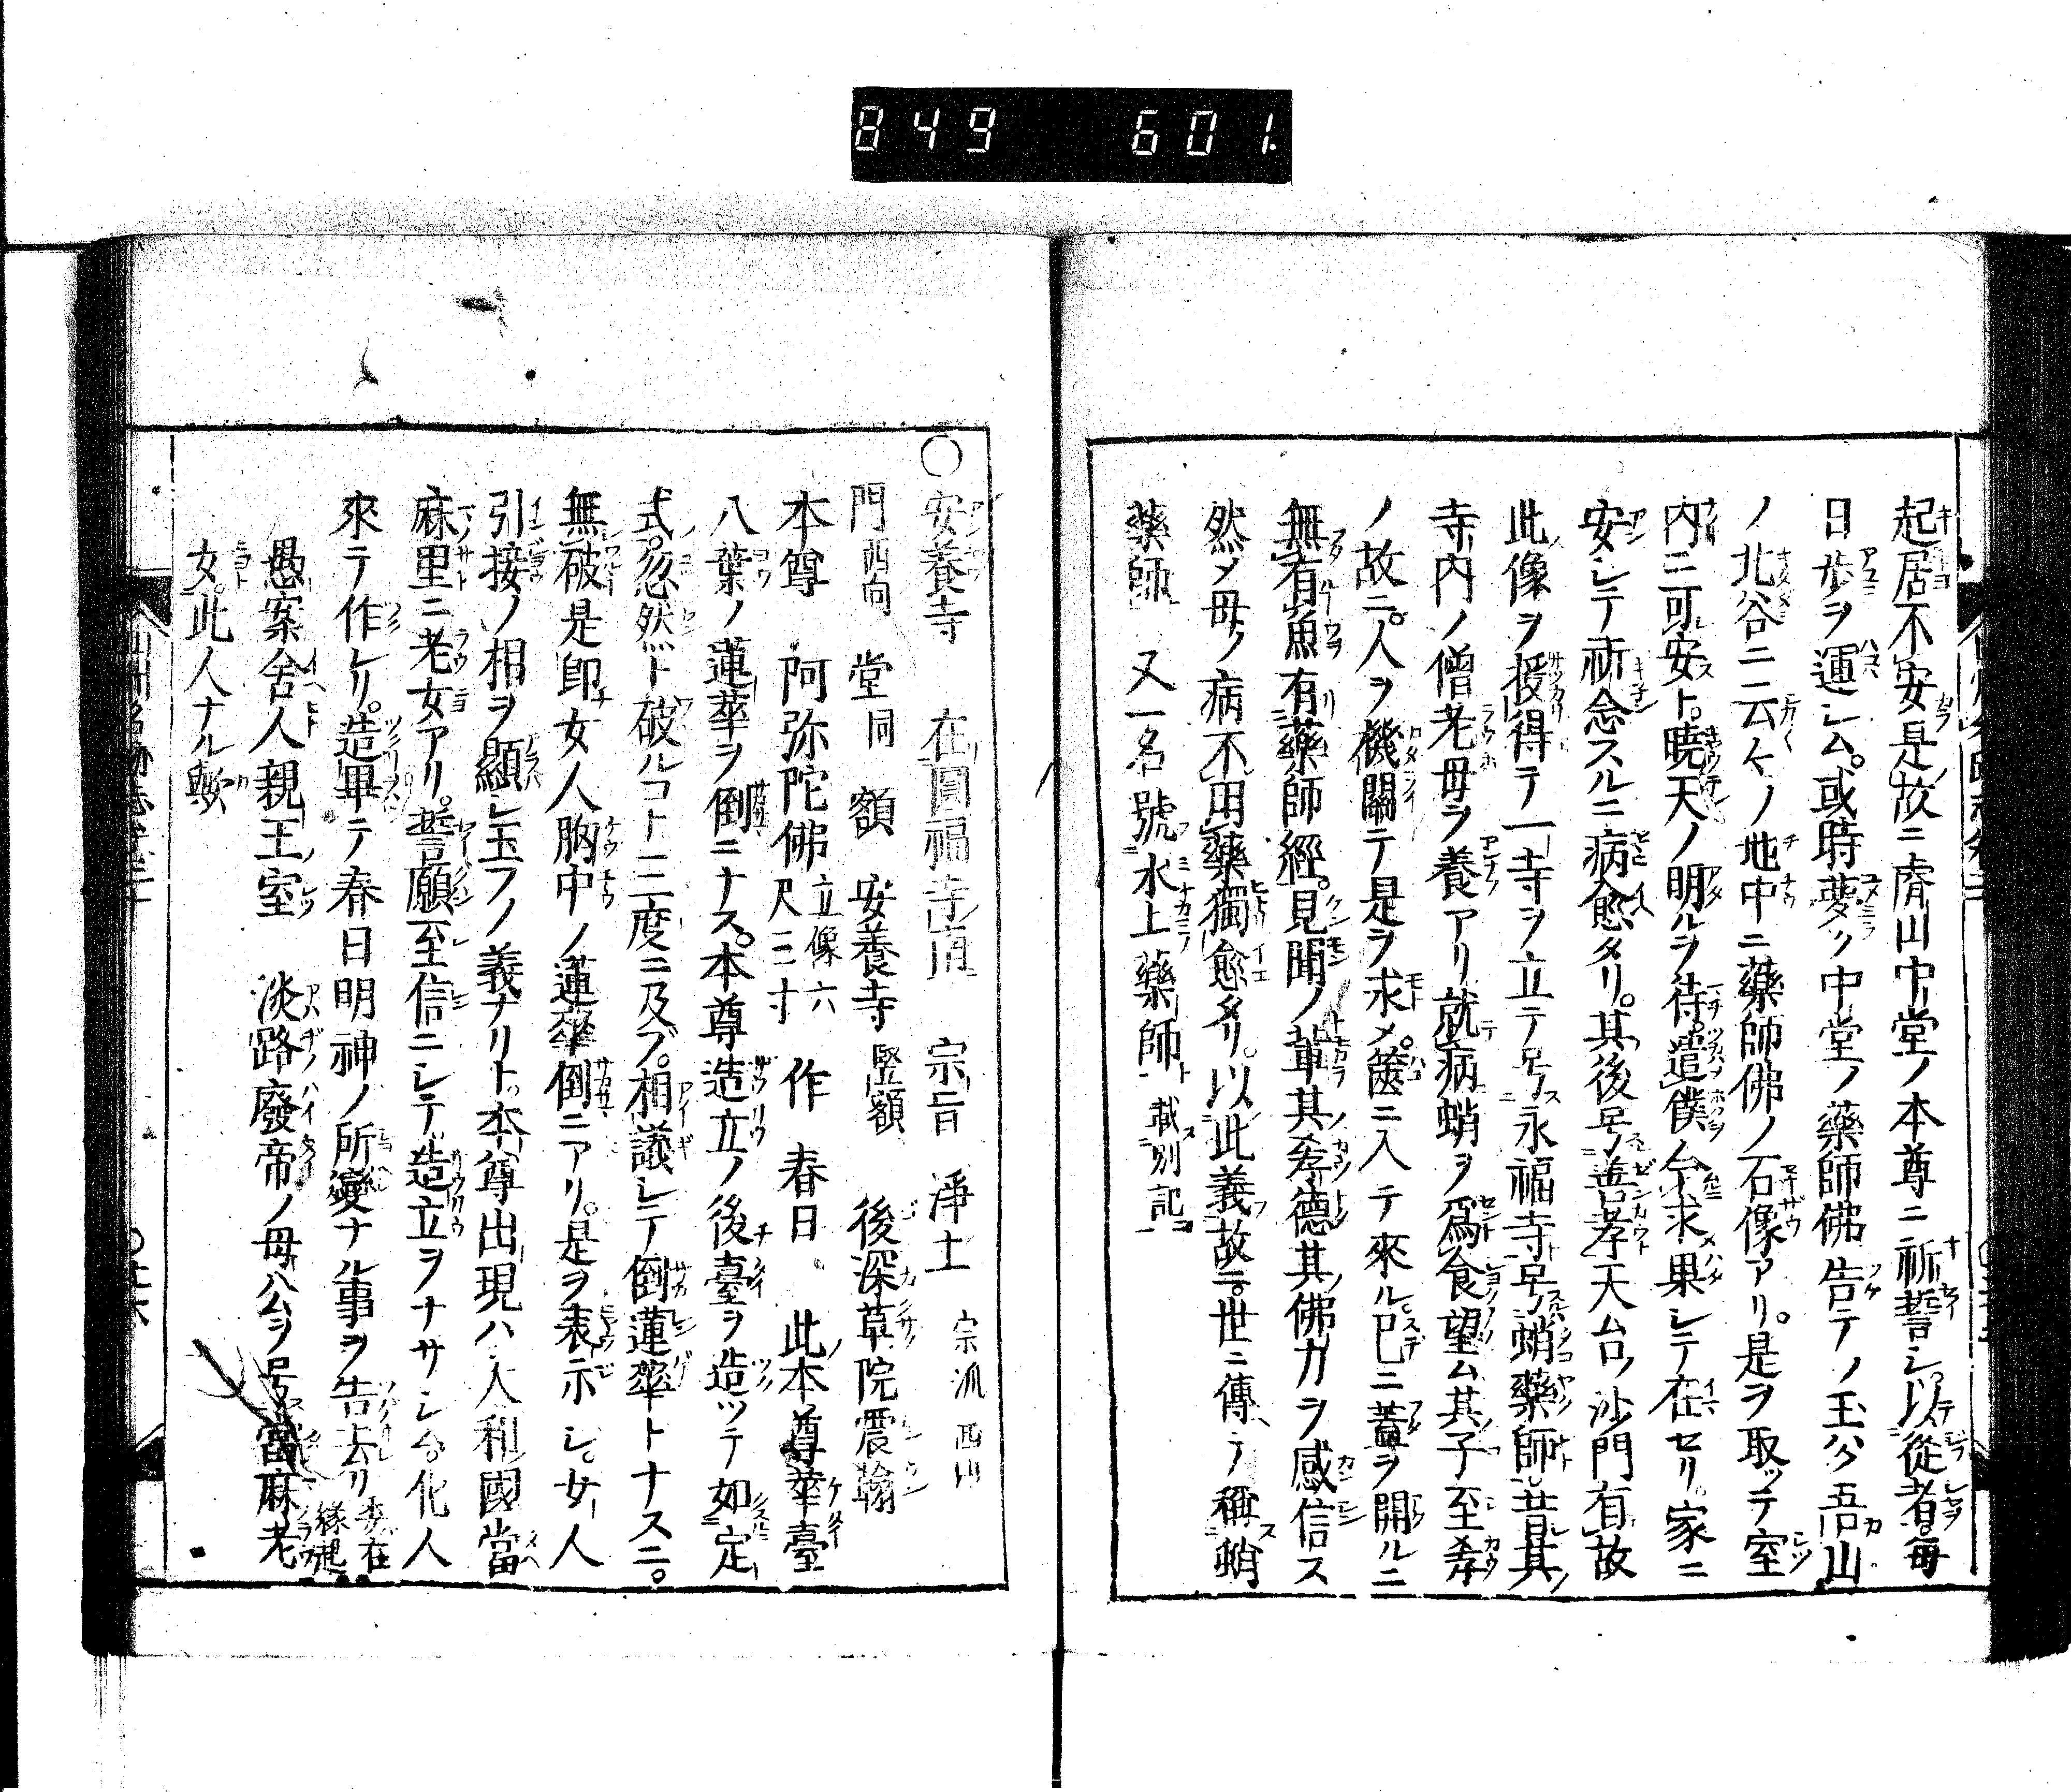 849 601.
起居不安是故ニ脊山中堂ノ本尊ニ祈誓シ。以從者毎
日歩ヲ運シム。或時夢ノ中堂ノ藥師佛告テノ玉ハク吾山
ノ北谷ニ云々ノ地中ニ藥師佛ノ石像アリ。是ヲ取ッテ室
内ニ可安ト。曉天ノ明ルヲ待。遣僕令求果シテ在セリ。家ニ
安シテ祈念スルニ病愈タリ。其後号善孝天台ノ沙門有故
此像ヲ授得テ一寺ヲ立テ号ス永福寺号蛸藥師。昔其
寺内ノ僧老母ヲ養アリ就病蛸ヲ爲食望ム其子至孝
ノ故ニ。人ヲ機關テ是ヲ求メ。篋ニ入テ來ル已ニ蓋ヲ開ルニ
無有魚有藥師經。見聞ノ輩其孝德其佛力ヲ感信ス
然メ母ノ病不用藥獨愈タリ。以此義故ニ世ニ傳テ稱蛸
藥師 又一名號水上藥師 載別記
○安養寺 在圓福寺南 宗旨 淨土 宗派西山
門西向 堂同 額 安養寺 竪額 後深草院震翰
本尊 阿弥陀佛 立像六尺三寸 作 春日 此本尊華臺
八葉ノ蓮華ヲ倒ニナス。本尊造立ノ後臺ヲ造ッテ如定
式。忽然ト破ルコト三度ニ及ブ。相議シテ倒蓮華トナスニ。
無破是即女人胸中ノ蓮華倒ニアリ。是ヲ表示シ。女人
引接ノ相ヲ顯シ玉フノ義ナリト。本尊出現ハ大和國當
麻里ニ老女アリ。誓願至信ニシテ造立ヲナサシム。化人
來テ作レリ。造畢テ春日明神ノ所變ナル事ヲ告去リ 委在緣起
愚案舍人親王室 淡路廢帝ノ母公ヲ号當麻老
女。此人ナル歟